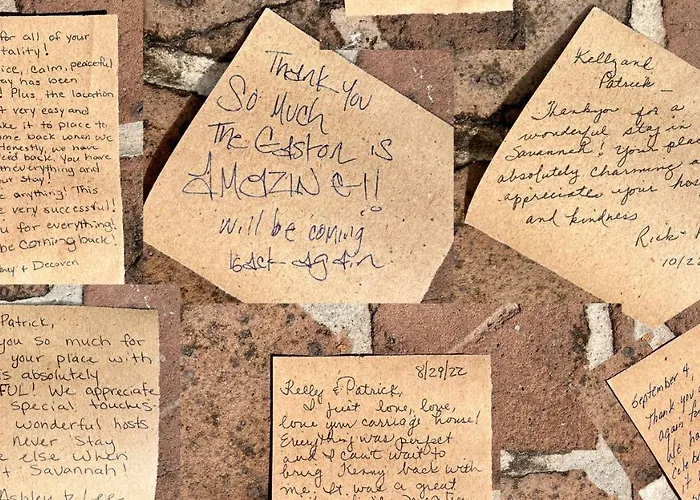 for all of your
tality!
ice, calm, peaceful
ay has been
! Plus the location
t very easy and
ke it to place to
ome back when we
Honestly, we have
ced back. You have
th everything and
ur stay!
e anything! This
e very successful!
u for everything!
be coming back!
ney + Decoven
Thank You
So Much
The Easton is
AMAZING!!
will be coming
back again
Kelly and
Patrick —
Thankyou for a
wonderful stay in
Savannah! Your plac
absolutely charming a
appreciates your hos
and kindness
Rick +
10/2
Patrick,
you so much for
your place with
is absolutely
FUL! We appreciate
special touches-
wonderful hosts
never stay
e else when
t Savannah!
Ashley & Lee
8/29/22
Kelly & Patrick,
I just love, love,
love your carriage house!
Everything was perfect
and I can't wait to
bring Kenny back with
me. It was a great
September 4,
Thank you
again fo
We ha
celeb